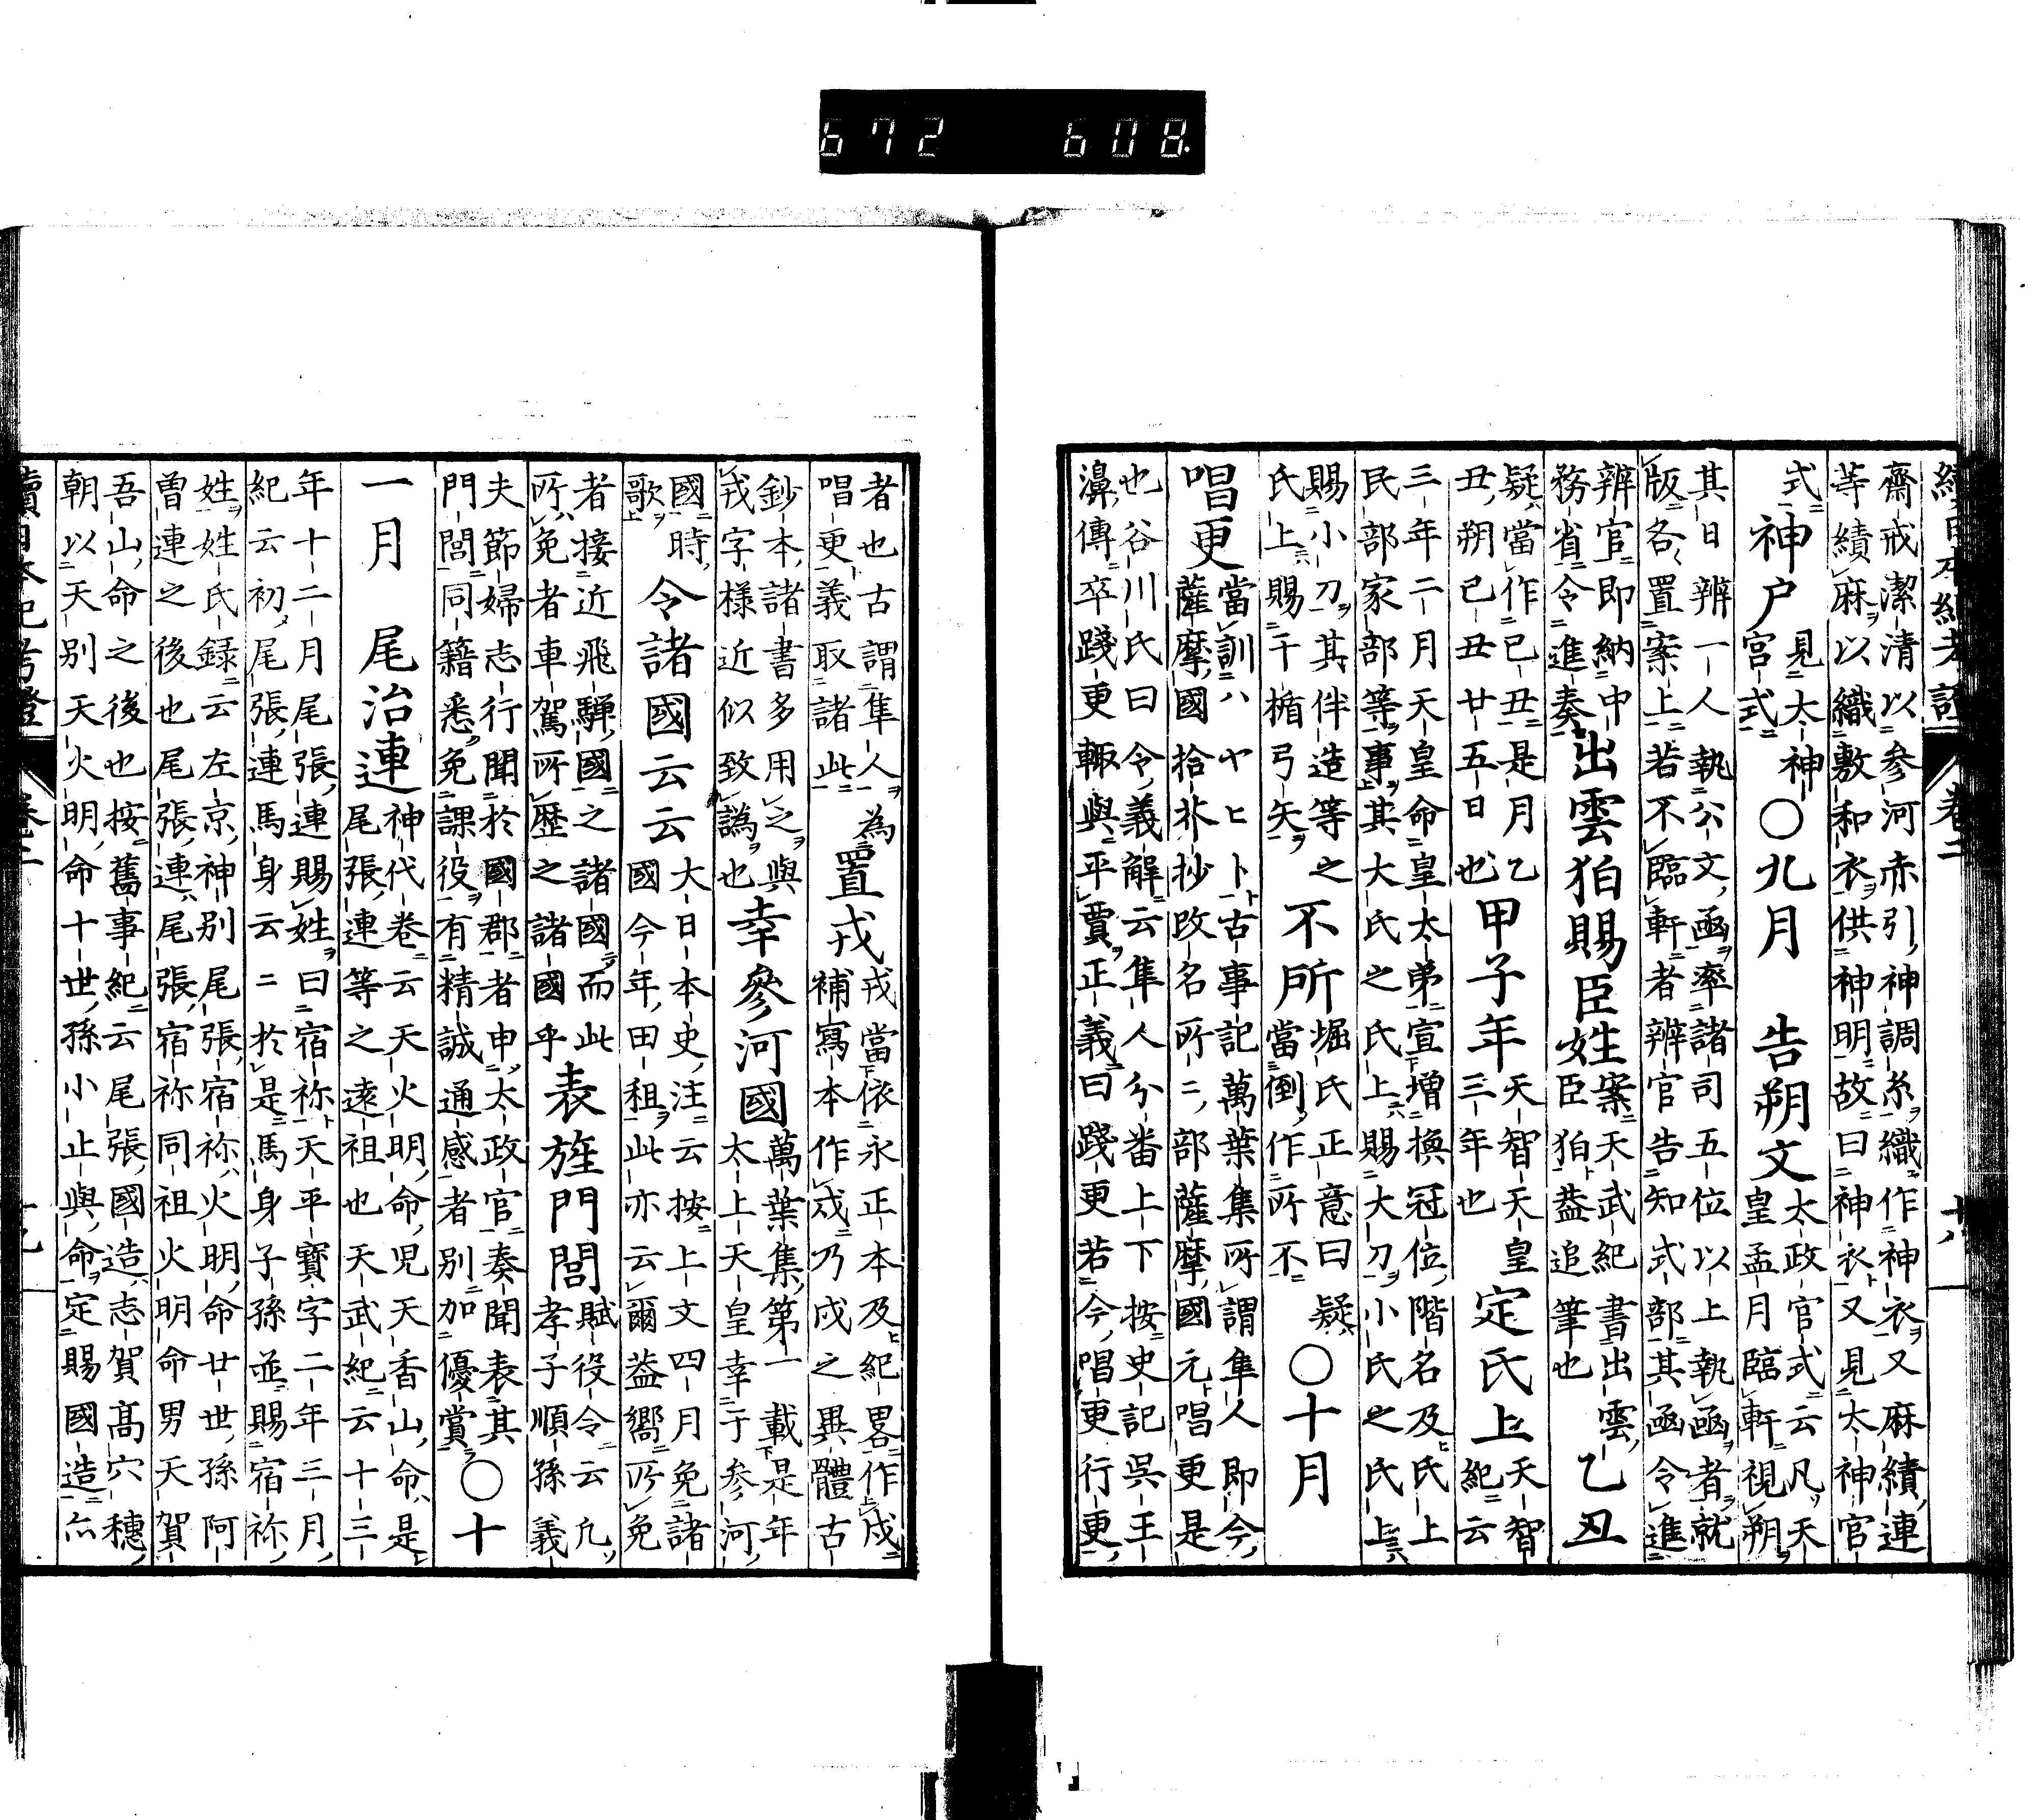 672 608
續日本紀考證 卷二 十八
齋戒潔清以参河赤引神調糸織作神衣又麻績連
等績麻以織敷和衣供神明故曰神衣又見太神官
式 神戸 見太神宮式 〇九月 告朔文 太政官式云凡天皇孟月臨軒視朔
其日辨一人執公文函率諸司五位以上執函者就
版各置案上若不臨軒者辨官告知式部其函令進
辨官即納中務省令進奏 出雲狛賜臣姓 案天武紀書出雲臣狛蓋追筆也 乙丑
疑當作己丑是月乙丑朔己丑廿五日也 甲子年 天智天皇三年也 定氏上 天智紀云
三年二月天皇命皇太弟宣增換冠位階名及氏上
民部家部等事其大氏之氏上賜大刀小氏之氏上
賜小刀其伴造等之氏上賜干楯弓矢 不所 堀氏正意曰疑當倒作所不 〇十月
唱更 當訓ハヤヒト古事記萬葉集所謂隼人即今薩摩國拾芥抄改名所二部薩摩國元唱更是
也谷川氏曰令義解云隼人分番上下按史記呉王
濞傳卒踐更輙與平賈正義曰踐更若今唱更行更
者也古謂隼人為唱更義取諸此 置戍 戎當依永正本及紀畧作戍補寫本作戍乃戍之異體古
鈔本諸書多用之與戎字様近似致譌也 幸參河國 萬葉集第一載是年太上天皇幸于参河
國時歌 令諸國云云 大日本史注云按上文四月免諸國今年田租此亦云爾蓋嚮所免
者接近飛騨國之諸國而此所免者車駕所歴之諸國乎 表旌門閭 賦役令云凡孝子順孫義
夫節婦志行聞於國郡者申太政官奏聞表其門閭同籍悉免課役有精誠通感者別加優賞 〇十
一月 尾治連 神代卷云天火明命児天香山命是尾張連等之遠祖也天武紀云十三
年十二月尾張連賜姓曰宿祢天平寶字二年三月
紀云初尾張連馬身云二於是馬身子孫並賜宿祢
姓姓氏録云左京神別尾張宿祢火明命廿世孫阿
曽連之後也尾張連尾張宿祢同祖火明命男天賀
吾山命之後也按舊事紀云尾張國造志賀髙穴穗
朝以天別天火明命十世孫小止與命定賜國造尓
續日本紀考證 卷二 十九